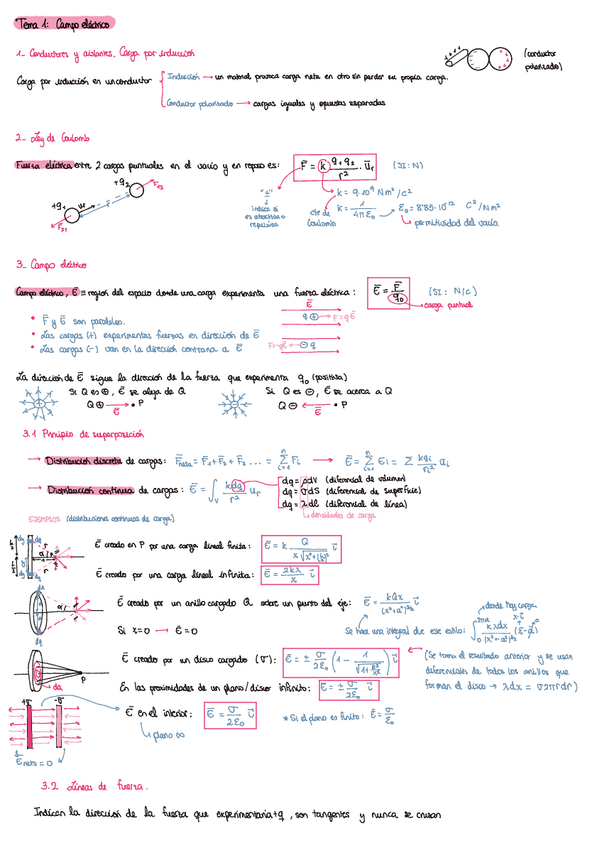 Tema 1: Campo eléctrico
1- Conductores y aislantes. Carga por inducción
Carga por inducción en un conductor { Inducción → un material provoca carga neta en otro sin perder su propia carga.
Conductor polarizado → cargas iguales y opuestas separadas
(conductor polarizado)
2- Ley de Coulomb
Fuerza eléctrica entre 2 cargas puntuales en el vacío y en reposo es: F = k q₁q₂/r² · ūr (SI: N)
+q₂ F₁₂
+q₁ ūr r F₂₁
"±" indica si es atractiva o repulsiva
cte de Coulomb
k = 9·10⁹ Nm²/C²
k = 1/4πε₀ → ε₀ = 8'85·10⁻¹² C²/Nm²
↳ permitividad del vacío.
3- Campo eléctrico
Campo eléctrico, Ē = región del espacio donde una carga experimenta una fuerza eléctrica: Ē = F̄/q₀ (SI: N/C)
→ carga puntual
• F̄ y Ē son paralelos.
• Las cargas (+) experimentan fuerzas en dirección de Ē
• Las cargas (-) van en la dirección contraria a Ē
Ē
q ⊕ → F=qĒ
F=qĒ ← ⊖ q
La dirección de Ē sigue la dirección de la fuerza que experimenta q₀ (positiva)
Si Q es ⊕, Ē se aleja de Q
Q⊕ → • P
Ē
Si Q es ⊖, Ē se acerca a Q
Q⊖ ← • P
Ē
3.1 Principio de superposición
→ Distribución discreta de cargas: F̄neta = F̄₁+F̄₂+F̄₃ ... = Σ F̄i → Ē = Σ Ēi = Σ kqi/ri² ūi
→ Distribución continua de cargas: Ē = ∫v kdq/r² ūr
dq = ρdV (diferencial de volumen)
dq = σdS (diferencial de superficie)
dq = λdl (diferencial de línea)
↳ densidades de carga
EJEMPLOS (distribuciones continuas de carga)
Ē creado en P por una carga lineal finita: Ē = k Q/x√x²+(L/2)² ī
Ē creado por una carga lineal infinita: Ē = 2kλ/x ī
Ē creado por un anillo cargado Q sobre un punto del eje: Ē = kQx/(x²+a²)^3/2 ī
Si x=0 → Ē=0
Se hará una integral de ese estilo:
donde hay carga
Ē creado por un disco cargado (σ): Ē = ± σ/2ε₀ (1 - 1/√1+R²/x²) ī
(Se toma el resultado anterior y se usan diferenciales de todos los anillos que forman el disco → λdx = σ2πrdr)
En las proximidades de un plano/disco infinito: Ē = ± σ/2ε₀ ī
Ē en el interior: Ē = σ/2ε₀ ī
↳ plano ∞
* Si el plano es finito: Ē = σ/ε₀
+σ -σ
Ēneto = 0
3.2 Líneas de fuerza.
Indican la dirección de la fuerza que experimentaría +q, son tangentes y nunca se cruzan